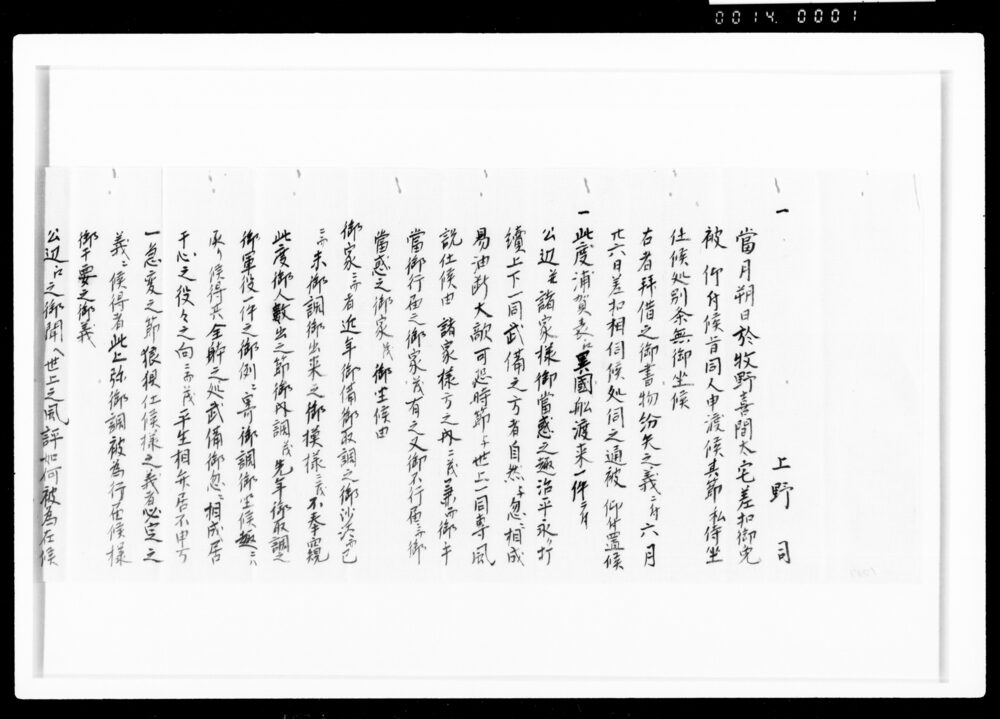 0014. 0001
上野 司
一
當月朔日於牧野喜間太宅差扣御免
被 仰付候旨同人申渡候其節私侍坐
仕候処別条無御坐候
右者拝借之御書物紛失之義ニ付六月
廿六日差扣相伺候処伺之通被 仰付置候
一此度浦賀表江異國舩渡来一件ニ付
公辺並諸家様御當惑之趣治平永ゝ打
續上下一同武備之方者自然与忽ニ相成
易油断大敵可恐時節与世上一同専風
説仕候由 諸家様方之内ニ茂兼而御手
當御行届之御家茂有之又御不行届ニ而御
當惑之御家茂 御坐候由
御家ニ而者近年御備御取調之御沙汰ニ而已
ニ而未御調御出来之御模様ニ茂不奉窺
此度御人数出之節御内調茂先年御取調之
御軍役一件之御例ニ寄御調御坐候趣ニハ
承り候得共全躰之処武備御忽ニ相成居
干心之役々之向ニ而茂平生相弁居不申万
一急変之節狼狽仕候様之義者必定之
義ニ候得者此上弥御調被為行届候様
御干要之御義
公辺江之御聞ヘ世上之風評如何被為在候